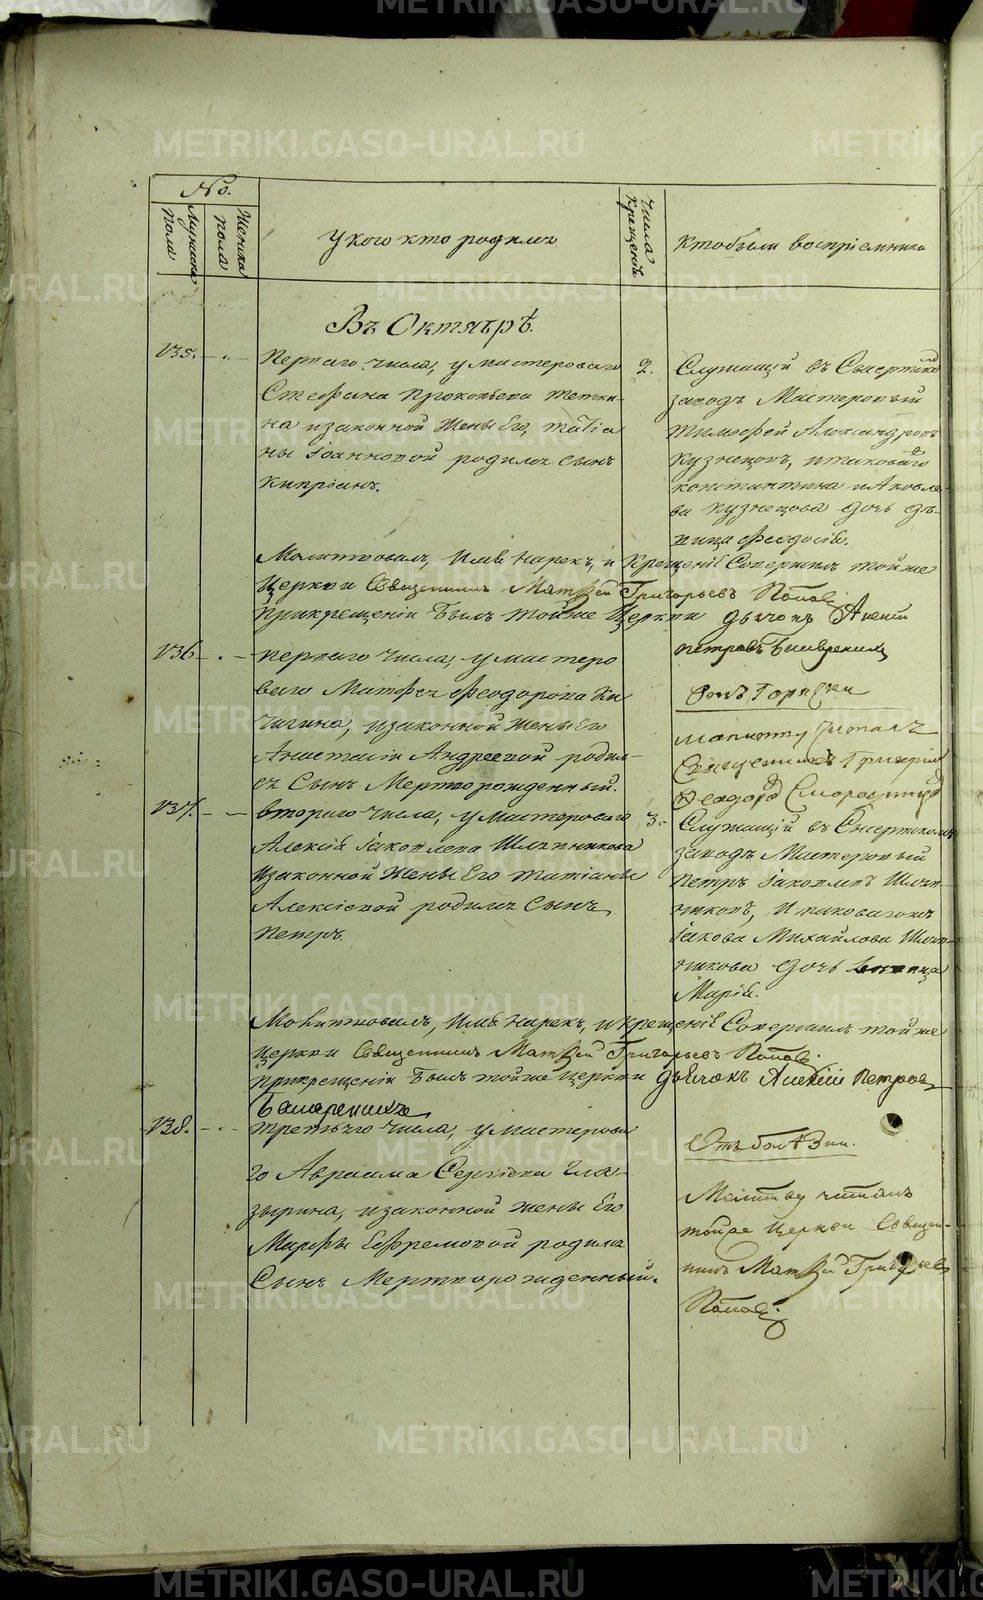 METRIKI.GASO-URAL.RU
No.
Мужеска пола
Женска пола
у кого кто родился
числа крещенія
кто были воспріемники
Въ Октябрѣ.
135.
Перваго числа, у мастероваго
Стефана Прокопьева
на и законной жены Его, Татіа
ны Іоанновой родился сынъ
Кипріанъ.
2.
Служащій въ Сысертском
заводѣ Мастеровый
Тимофей Александровъ
Кузнецовъ, и таковаго
Константина Іаковле
ва Кузнецова дочь дѣ-
вица Феодосія.
Молитвовалъ, имя нарекъ, и крещеніе совершилъ тойже
Церкви Священникъ Матвей Григорьевъ Поповъ
при крещеніи былъ тойже Церкви дьячокъ Алексій
Петровъ
136
перваго числа, у мастеро
ваго Матфея Феодорова Ки
чигина, и законной жены Его
Анастасіи Андреевой родил-
ся сынъ мерторожденный.
молитву читалъ
Священникъ Григорій
Феодоровъ
137.
втораго числа, у мастероваго
Алексія Іаковлева Шляпникова
и законной жены Его Татіаны
Алексіевой родился сынъ
Петеръ.
3.
Служащій въ Сысертском
заводѣ Мастеровый
Петръ Іаковлевъ Шляп-
никовъ, и таковагожъ
Іакова Михайлова Шляп-
никова дочь девица
Марія.
Молитвовалъ, имя нарекъ, и крещеніе совершилъ тойже
церкви Священникъ Матвей Григорьевъ Поповъ.
при крещеніи былъ тойже церкви дьячокъ Алексій Петровъ
138.
третьяго числа, у мастерова
го Авраама Сергіева Гла-
зырина, и законной жены Его
Марфы Ефремовой родился
Сынъ Мерторожденный.
Молитву читалъ
тойже Церкви Священ-
никъ Матвей Григорьевъ
Поповъ